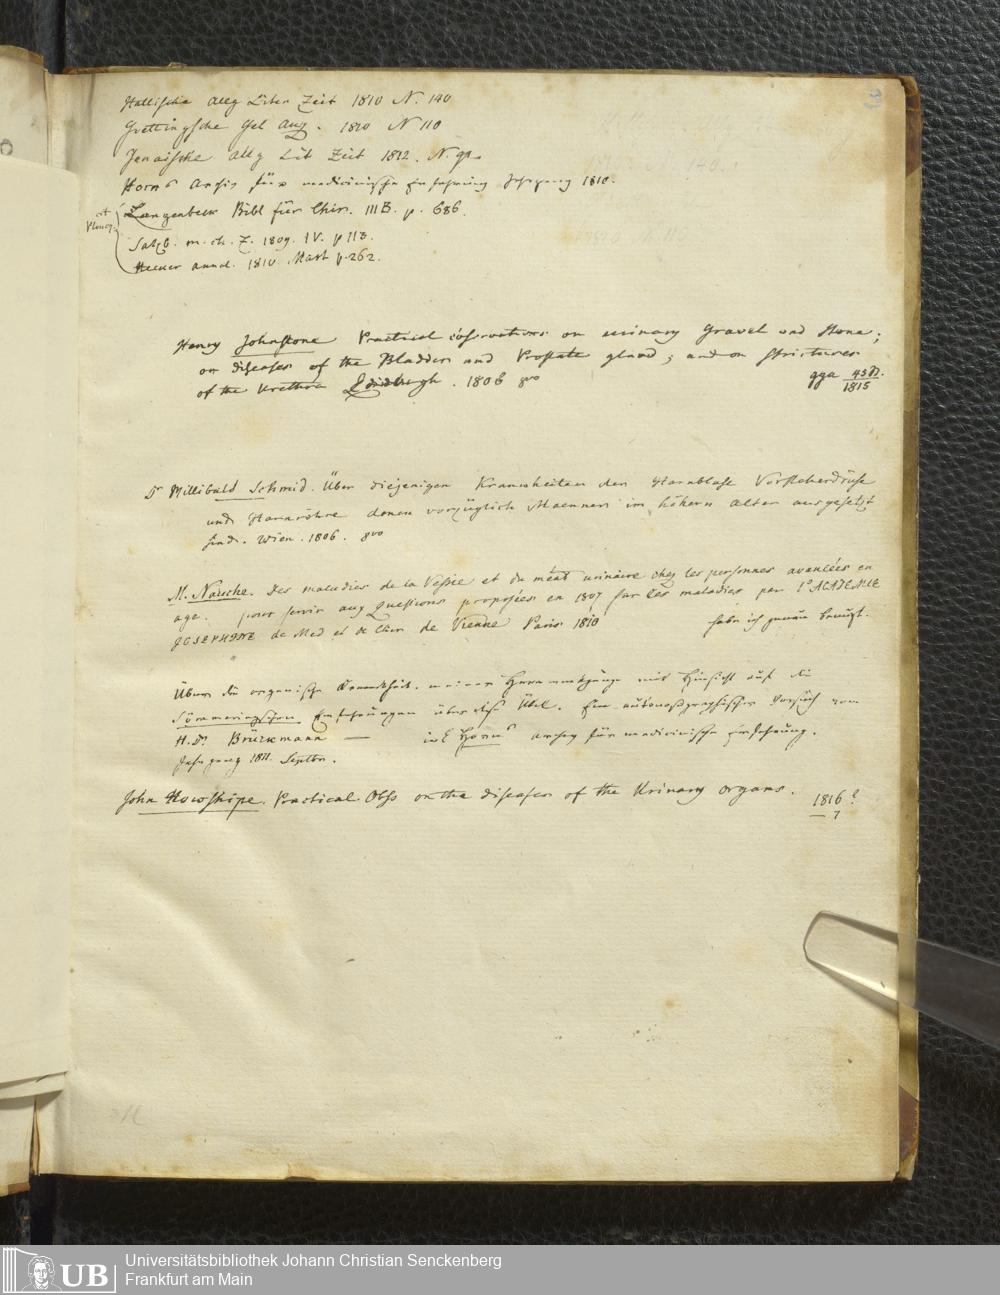 Hallische Allg Liter Zeit 1810 N. 140
Goettingsche Gel Anz. 1810 N 110
Jenaische Allg Lit Zeit 1812. N. 92
Horns Archiv für medicinische Erfahrung Jahrgang 1810.
Langenbeck Bibl für Chir. III B. p. 686.
Salzb. m. ch. Z. 1809. IV. p 113.
Hecker annal. 1810. Mart p. 262.
Henry Johnstone Practical observations on urinary Gravel and Stone;
on diseases of the Bladder and Prostate gland; and on strictures
of the Urethra Edinburgh. 1806 8vo
gga 1815
Dr Willibald Schmid. Über diejenigen Krankheiten der Harnblase Vorsteherdrüse
und Harnröhre denen vorzüglich Maenner im höhern Alter ausgesetzt
sind. Wien. 1806. 8vo
M. Nauche. Des maladies de la Vessie et du méat urinaire chez les personnes avancées en
age. pour servir aux Questions proposées en 1807 sur les maladies par l'ACADEMIE
JOSEPHINE de Med et de Chir de Vienne Paris 1810
habe ich genau benuzt.
Über die organische Krankheit meiner Harnwerkzeuge mit Hinsicht auf die
Sömmeringschen Erfahrungen über dies Übel. Ein autonosographischer Versuch vom
H. Dr. Brückmann — in E Horns Archiv für medicinische Erfahrung.
Jahrgang 1811. Septbr.
John Howshipe. Practical Obss on the diseases of the Urinary organs. 1816?
7
UB
Universitätsbibliothek Johann Christian Senckenberg
Frankfurt am Main